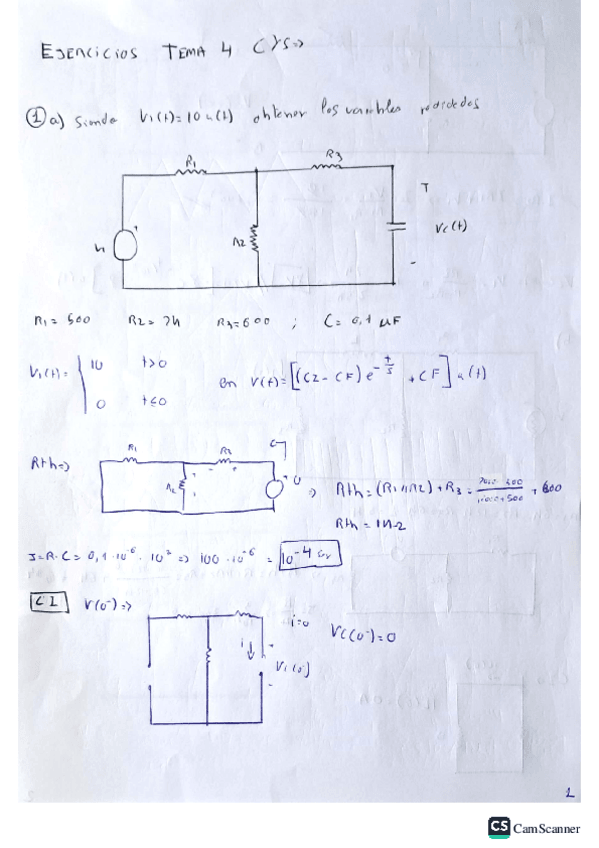 EJERCICIOS TEMA 4 CYS=>
① a) Siendo V₁(t)=10 u(t) obtener las variables pedidas
R₁ R₃
V₁ R2 + Vc(t) -
R₁= 500 R2= 2K R3=600 ; C= 0,1 μF
V₁(t)= { 10 t>0
0 t≤0
en V(t)= [(CI - CF) e^-t/τ + CF] u(t)
Rth=> R₁ R2
=> Rth= (R₁ // R2) + R3 = + 600
Rth= 1K
τ=R·C= 0,1·10⁻⁶ · 10³ => 100·10⁻⁶ = 10⁻⁴ seg
CI V(0⁻)=>
i=0 Vc(0⁻)=0
i↓ + Vc(0⁻) -
1
CS CamScanner